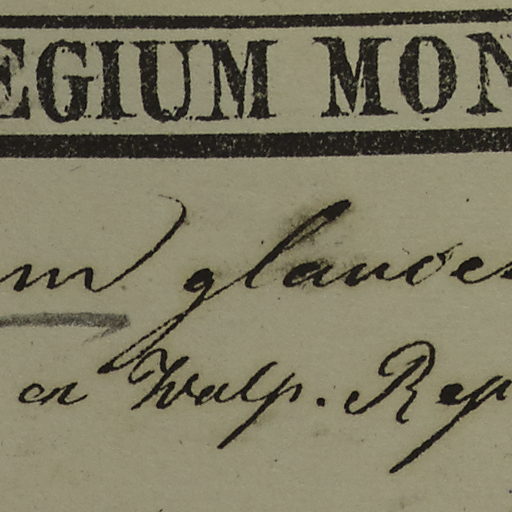 EGIUM MON
m glauce
ex Walp. Rep